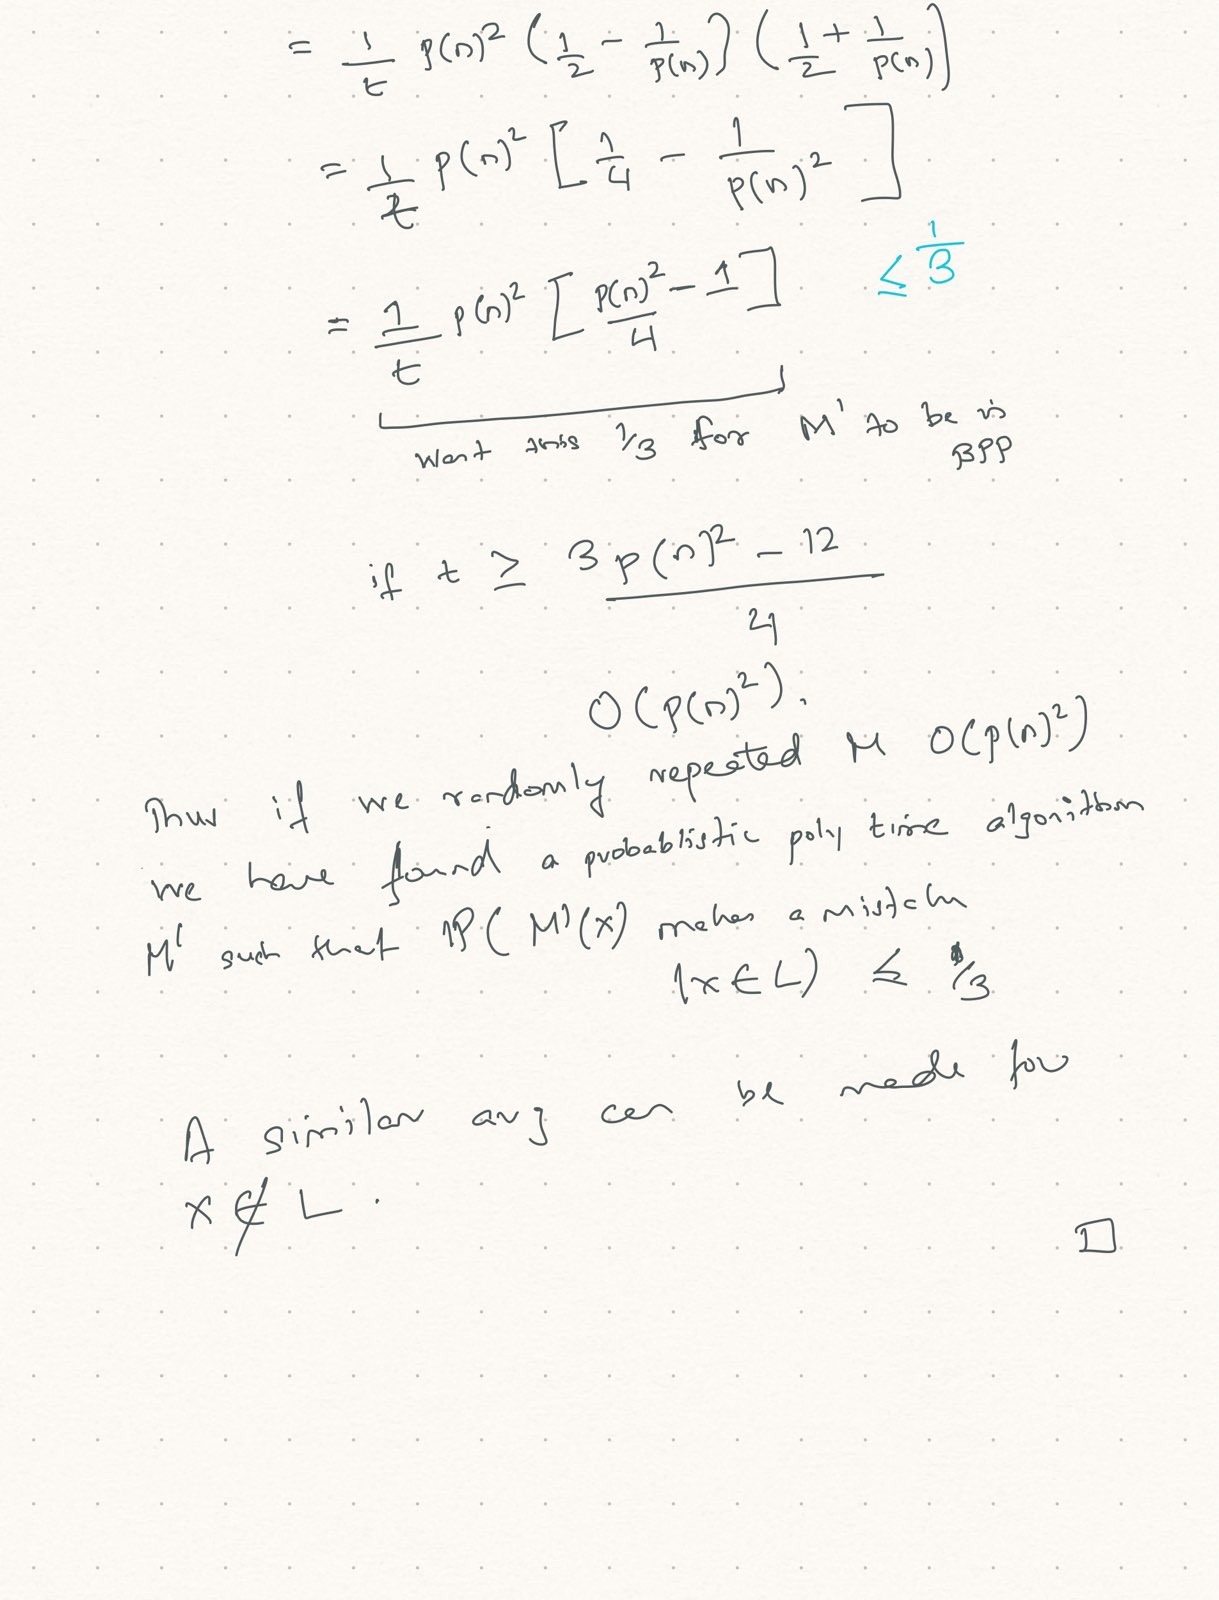 = 1/t p(n)² (1/2 - 1/p(n)) (1/2 + 1/p(n))
= 1/t p(n)² [ 1/4 - 1/p(n)² ]
= 1/t p(n)² [ p(n)²/4 - 1 ] ≤ 1/3
Want this 1/3 for M' to be in
BPP
if t ≥ 3p(n)² - 12 / 4
O(p(n)²).
Thus if we randomly repeated M O(p(n)²)
we have found a probablistic poly time algorithm
M' such that ℙ( M'(x) makes a mistake
|x ∈ L) ≤ 1/3
A similar arg can be made for
x ∉ L.